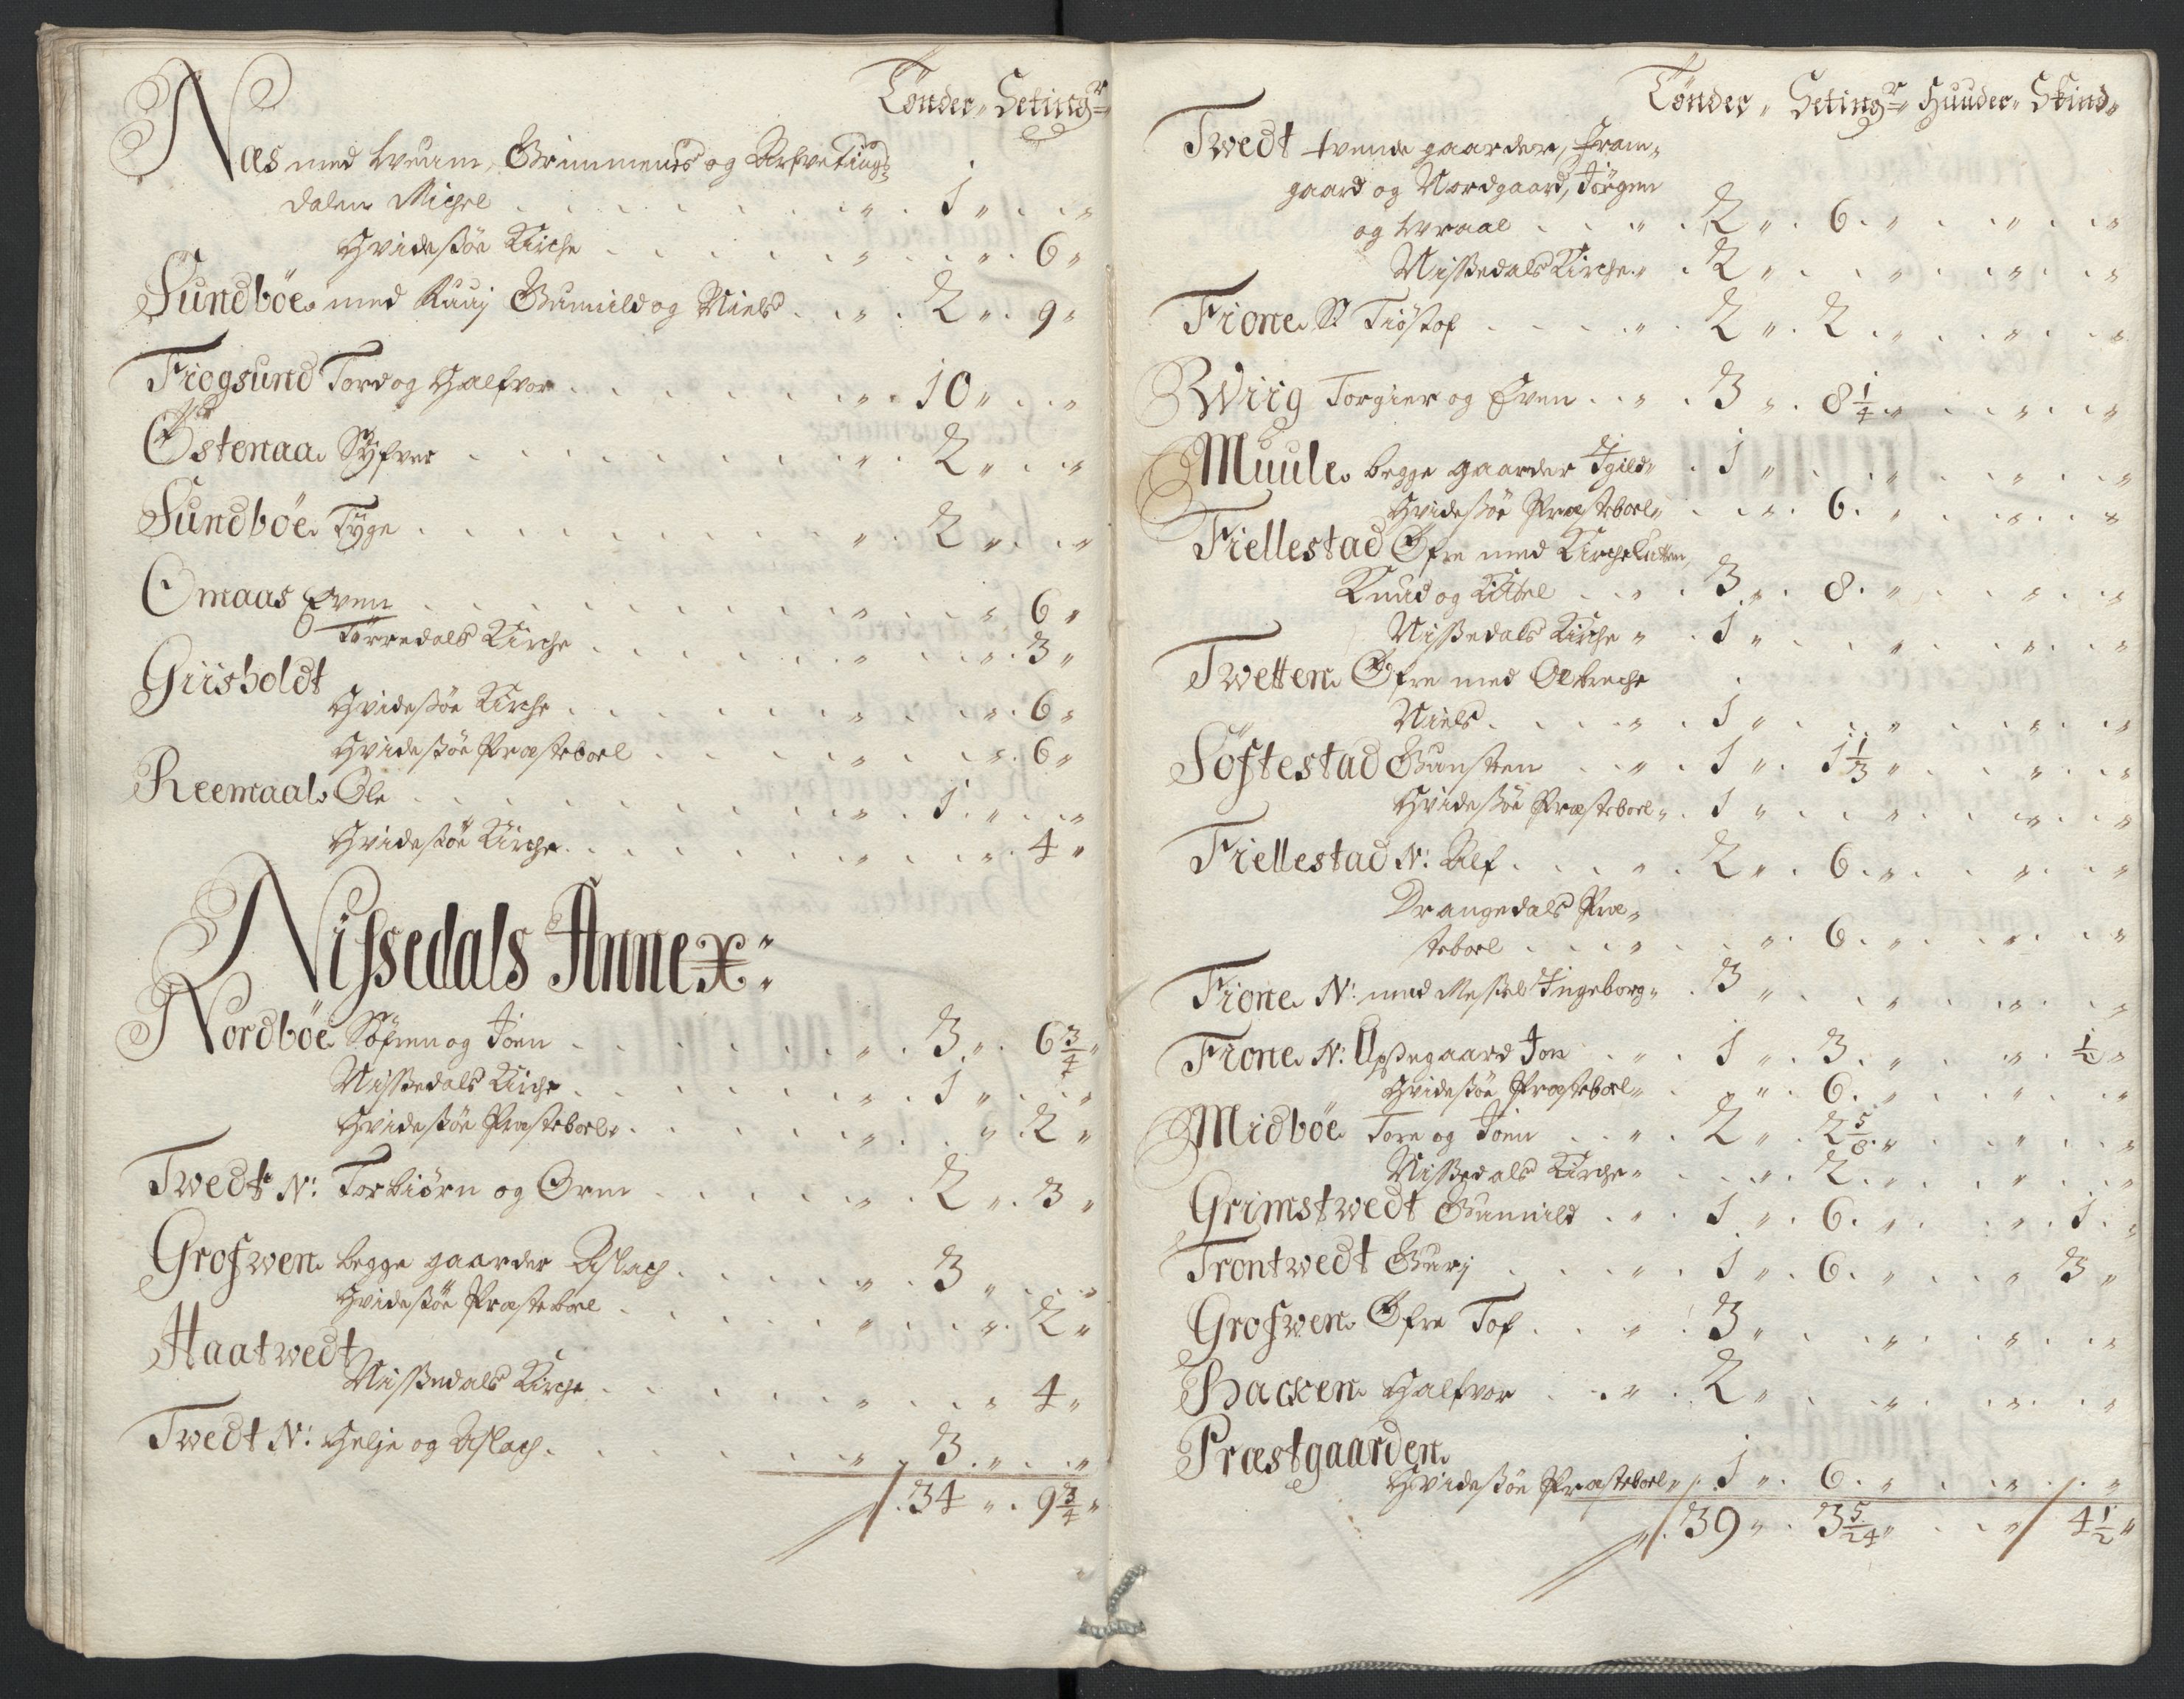 Tønder „ Seting:r „
Næs med Hvaam, Grimmerud og Arfveting„
dalen Michel . . . „ . 1 „ . . „
Hvidesßøe Kirche . . . „ . . „ . 6 „
Sundbøe med Ruuj Gunnild og Niels . . „ . 2 „ . 9 „
Fiogsund Tord og Halfvor . . . „ . 10 „ . . „
Østenaa Syfver . . . „ . 2 „ . . „
Sundbøe Tyge . . . „ . 2 „ . . „
Omaas Even . . . „ . . „ 6 „
Tørredals Kirche . . . „ . . „ . 3 „
Griisholdt
Hvidesßøe Kirche . . . „ . . „ . 6 „
Hvidesßøe Præsteboel . . . „ . . „ . 6 „
Reemaal Ole . . . „ . 1 . „ . . „
Hvidesßøe Kirche . . . „ . . „ . 4 „
Nissedals Annex:
Nordbøe Søfren og Joen . . . „ . 3 „ . 6 3/4 „
Nisßedals Kirche . . . „ . 1 „ . . „
Hvidesßøe Præsteboel . . . „ . . „ . 2 „
Twedt N: Torbiørn og Orm . . . „ . 2 „ . 3 „
Grofwen begge gaarder Aslach . . . „ . 3 „ . . „
Hvidesßøe Præsteboel . . . „ . . „ . 2 „
Haatwedt
Nisßedals Kirche . . . „ . . „ 4 „
Twedt N: Helje og Aslach . . . „ „ 3 . „ . . „
34 „ . 9 3/4 „
Tønder „ Seting:r „ Huuder „ Skind „
Twedt tvende gaarder, Fram„
gaard og Nordgaard, Jørgen
og Wraal . . . „ . 2 „ . 6 . „ . . „ . . „
Nisßedals Kirche „ . 2 „ . . „ . . „ . . „
Fione S: Tiøstof . . . „ . 2 „ . 2 . „ . . „ . . „
Wiig Torgier og Even . . „ . 3 „ . 8 1/4 „ . . „ . . „
Muule begge gaarder Egild „ . 1 „ . . „ . . „ . . „
Hvidesßøe Præsteboel „ . . „ . 6 . „ . . „ . . „
Fiellestad Øfre med Kirchelutten,
Knud og Kittel . . „ . 3 „ . 8 . „ . . „ . . „
Nisßedals Kirche „ . 1 „ . . „ . . „ . . „
Twetten Øfre med Olbreche
Niels . . . „ . 1 „ . . „ . . „ . . „
Søftestad Gunsten . . „ . 1 „ . 1 1/3 „ . . „ . . „
Hvidesßøe Præsteboel „ . 1 „ . . „ . . „ . . „
Fiellestad N: Alf . . . „ . 2 „ . 6 . „ . . „ . . „
Drangedals Præ„
steboel . . . „ . . „ . 6 . „ . . „ . . „
Fione N: med Messel Ingeborg „ . 3 „ . . „ . . „ . . „
Fione N: Opsßegaard Jon . . „ . 1 „ . 3 . „ . . „ . 1/2 „
Hvidesßøe Præsteboel „ . „ „ . 6 . „ . . „ . . „
Midbøe Tore og Joen . . „ . 2 „ . 2 5/8 „ . . „ . . „
Nisßedals Kirche „ . . „ . 2 . „ . . „ . . „
Grimstwedt Gunnild . . „ . 1 „ . 6 . „ . . „ . 1 . „
Trontwedt Gurj . . . „ . 1 „ . 6 . „ . . „ 3 „
Grofwen Øfre Tof . . . „ . 3 „ . . „ . . „ . . „
Backen Halfvor . . „ . 2 „ . . „ . . „ . . „
Præstgaarden
Hvidesßøe Præsteboel „ . 1 „ . 6 . „ . . „ . . „
„ 39 „ . 3 5/24 „ . . „ 4 1/2 „